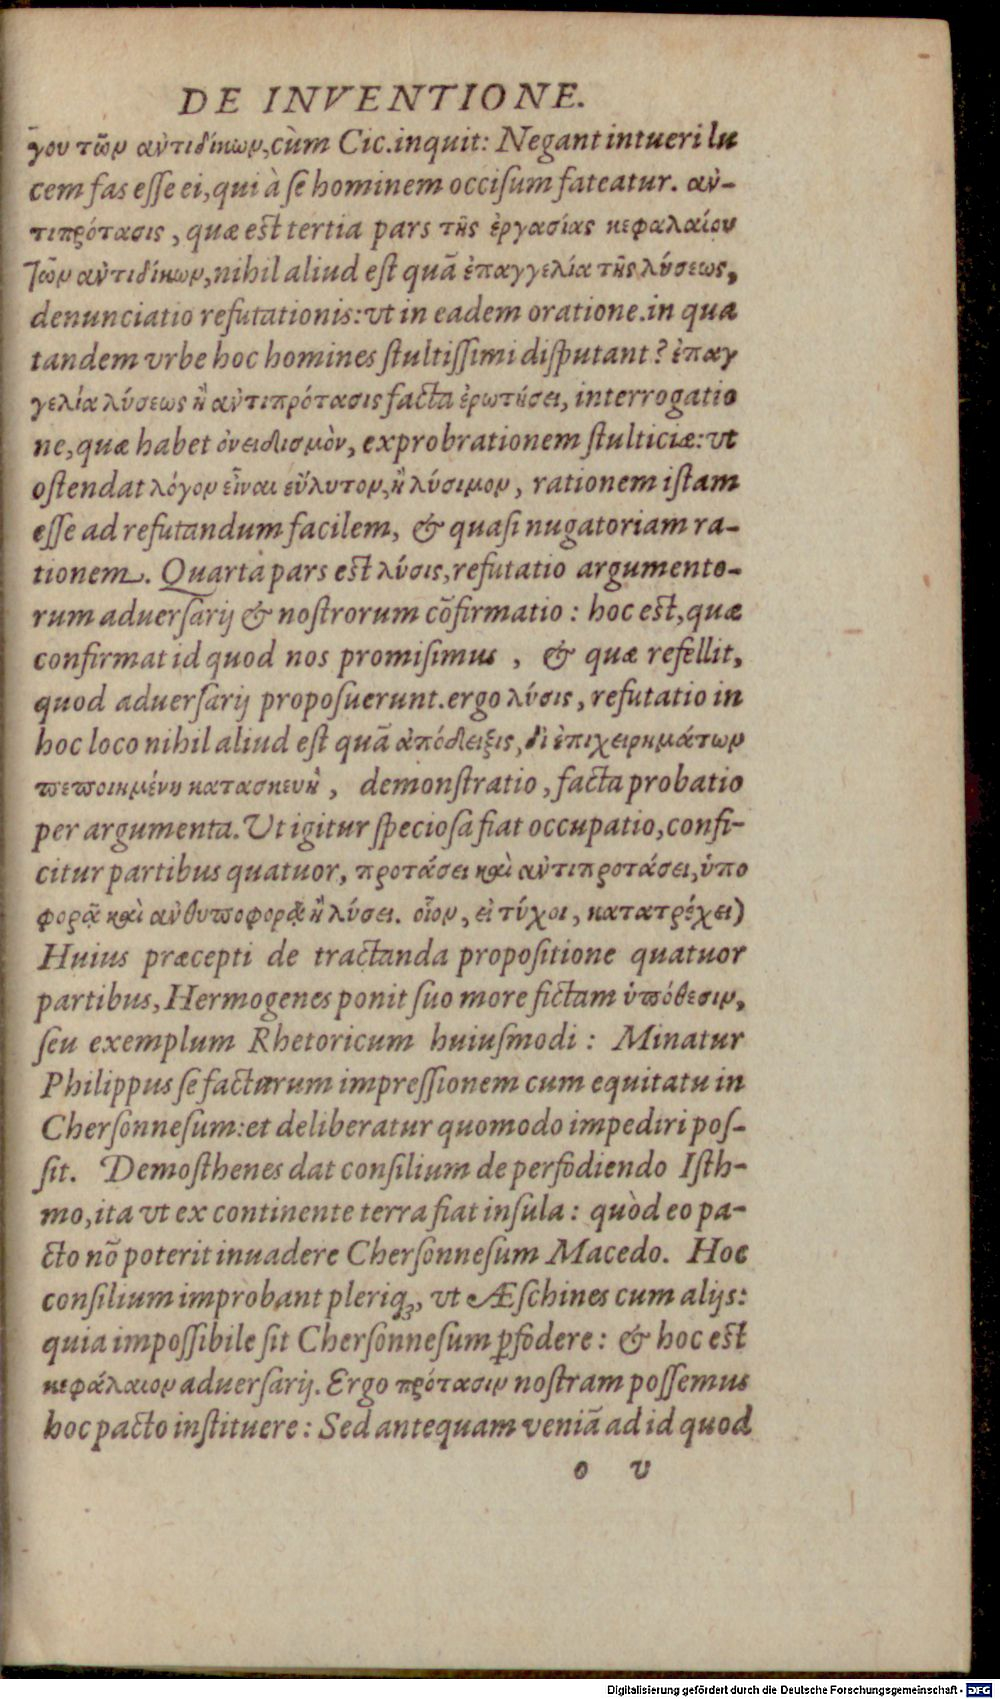 DE INVENTIONE.
γου τῶν ἀντιδίκων, cùm Cic. inquit: Negant intueri lu
cem fas esse ei, qui à se hominem occisum fateatur. ἀν-
τιπρότασις, quæ est tertia pars τῆς ἐργασίας κεφαλαίου
τῶν ἀντιδίκων, nihil aliud est quã ἐπαγγελία τῆς λύσεως,
denunciatio refutationis: vt in eadem oratione. in qua
tandem vrbe hoc homines stultissimi disputant? ἐπαγ
γελία λύσεως ἢ ἀντιπρότασις facta ἐρωτήσει, interrogatio
ne, quæ habet ὀνειδισμὸν, exprobrationem stulticiæ: vt
ostendat λόγον εἶναι εὔλυτον, ἢ λύσιμον, rationem istam
esse ad refutandum facilem, & quasi nugatoriam ra-
tionem. Quarta pars est λύσις, refutatio argumento-
rum aduersarij & nostrorum cõfirmatio: hoc est, quæ
confirmat id quod nos promisimus, & quæ refellit,
quod aduersarij proposuerunt. ergo λύσις, refutatio in
hoc loco nihil aliud est quã ἀπόδειξις, δι ἐπιχειρημάτων
πεποιημένη κατασκευὴ, demonstratio, facta probatio
per argumenta. Ut igitur speciosa fiat occupatio, confi-
citur partibus quatuor, προτάσει καὶ ἀντιπροτάσει, ὑπο
φορᾷ καὶ ἀνθυποφορᾷ ἢ λύσει. οἷον, εἰ τύχοι, κατατρέχει)
Huius præcepti de tractanda propositione quatuor
partibus, Hermogenes ponit suo more fictam ὑπόθεσιν,
seu exemplum Rhetoricum huiusmodi: Minatur
Philippus se facturum impressionem cum equitatu in
Chersonnesum: et deliberatur quomodo impediri pos-
sit. Demosthenes dat consilium de perfodiendo Isth-
mo, ita vt ex continente terra fiat insula: quòd eo pa-
cto nõ poterit inuadere Chersonnesum Macedo. Hoc
consilium improbant pleriq;, vt Æschines cum alijs:
quia impossibile sit Chersonnesum ꝑfodere: & hoc est
κεφάλαιον aduersarij. Ergo πρότασιν nostram possemus
hoc pacto instituere: Sed antequam veniã ad id quod
o v
Digitalisierung gefördert durch die Deutsche Forschungsgemeinschaft - DFG